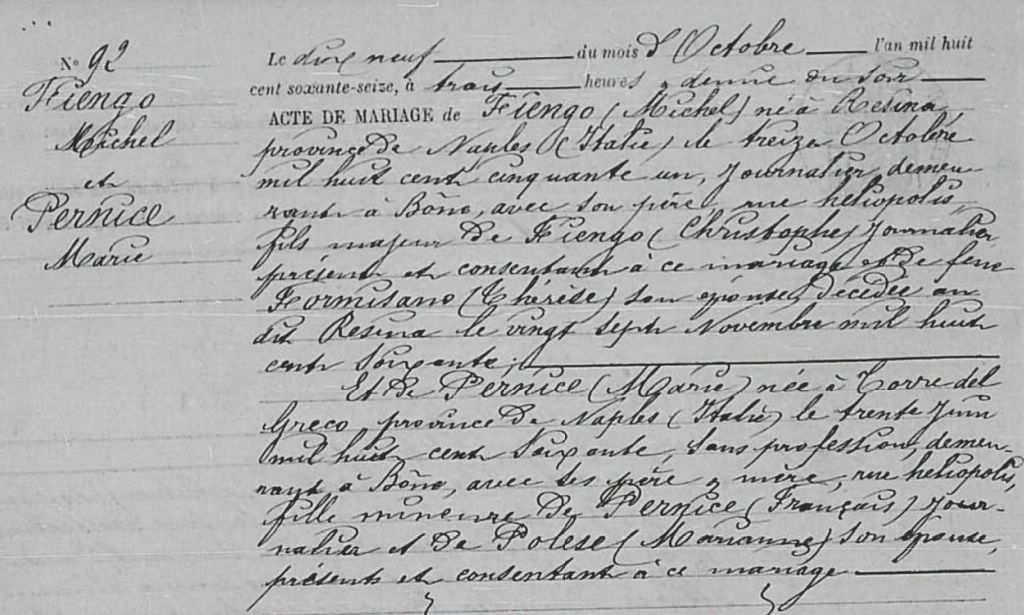 N° 92
Fiengo
Michel
et
Pernice
Marie
Le dix neuf du mois d'Octobre l'an mil huit
cent soixante-seize, à trois heures & demie du soir
ACTE DE MARIAGE de Fiengo (Michel) né à Resina,
province de Naples (Italie) le treize Octobre
mil huit cent cinquante un, Journalier, demeu
rant à Bône, avec son père, rue héliopolis,
fils majeur de Fiengo (Christophe) Journalier,
présent et consentant à ce mariage et de feue
Formisano (Thérèse) son épouse, décédée au
dit Resina le vingt sept Novembre mil huit
cent soixante ;
Et de Pernice (Marie) née à Torre del
Greco, province de Naples (Italie) le trente Juin
mil huit cent soixante, sans profession, demeu-
rant à Bône, avec ses père & mère, rue héliopolis,
fille mineure de Pernice (Français) Jour-
nalier et de Polese (Marianne) son épouse,
présents et consentant à ce mariage